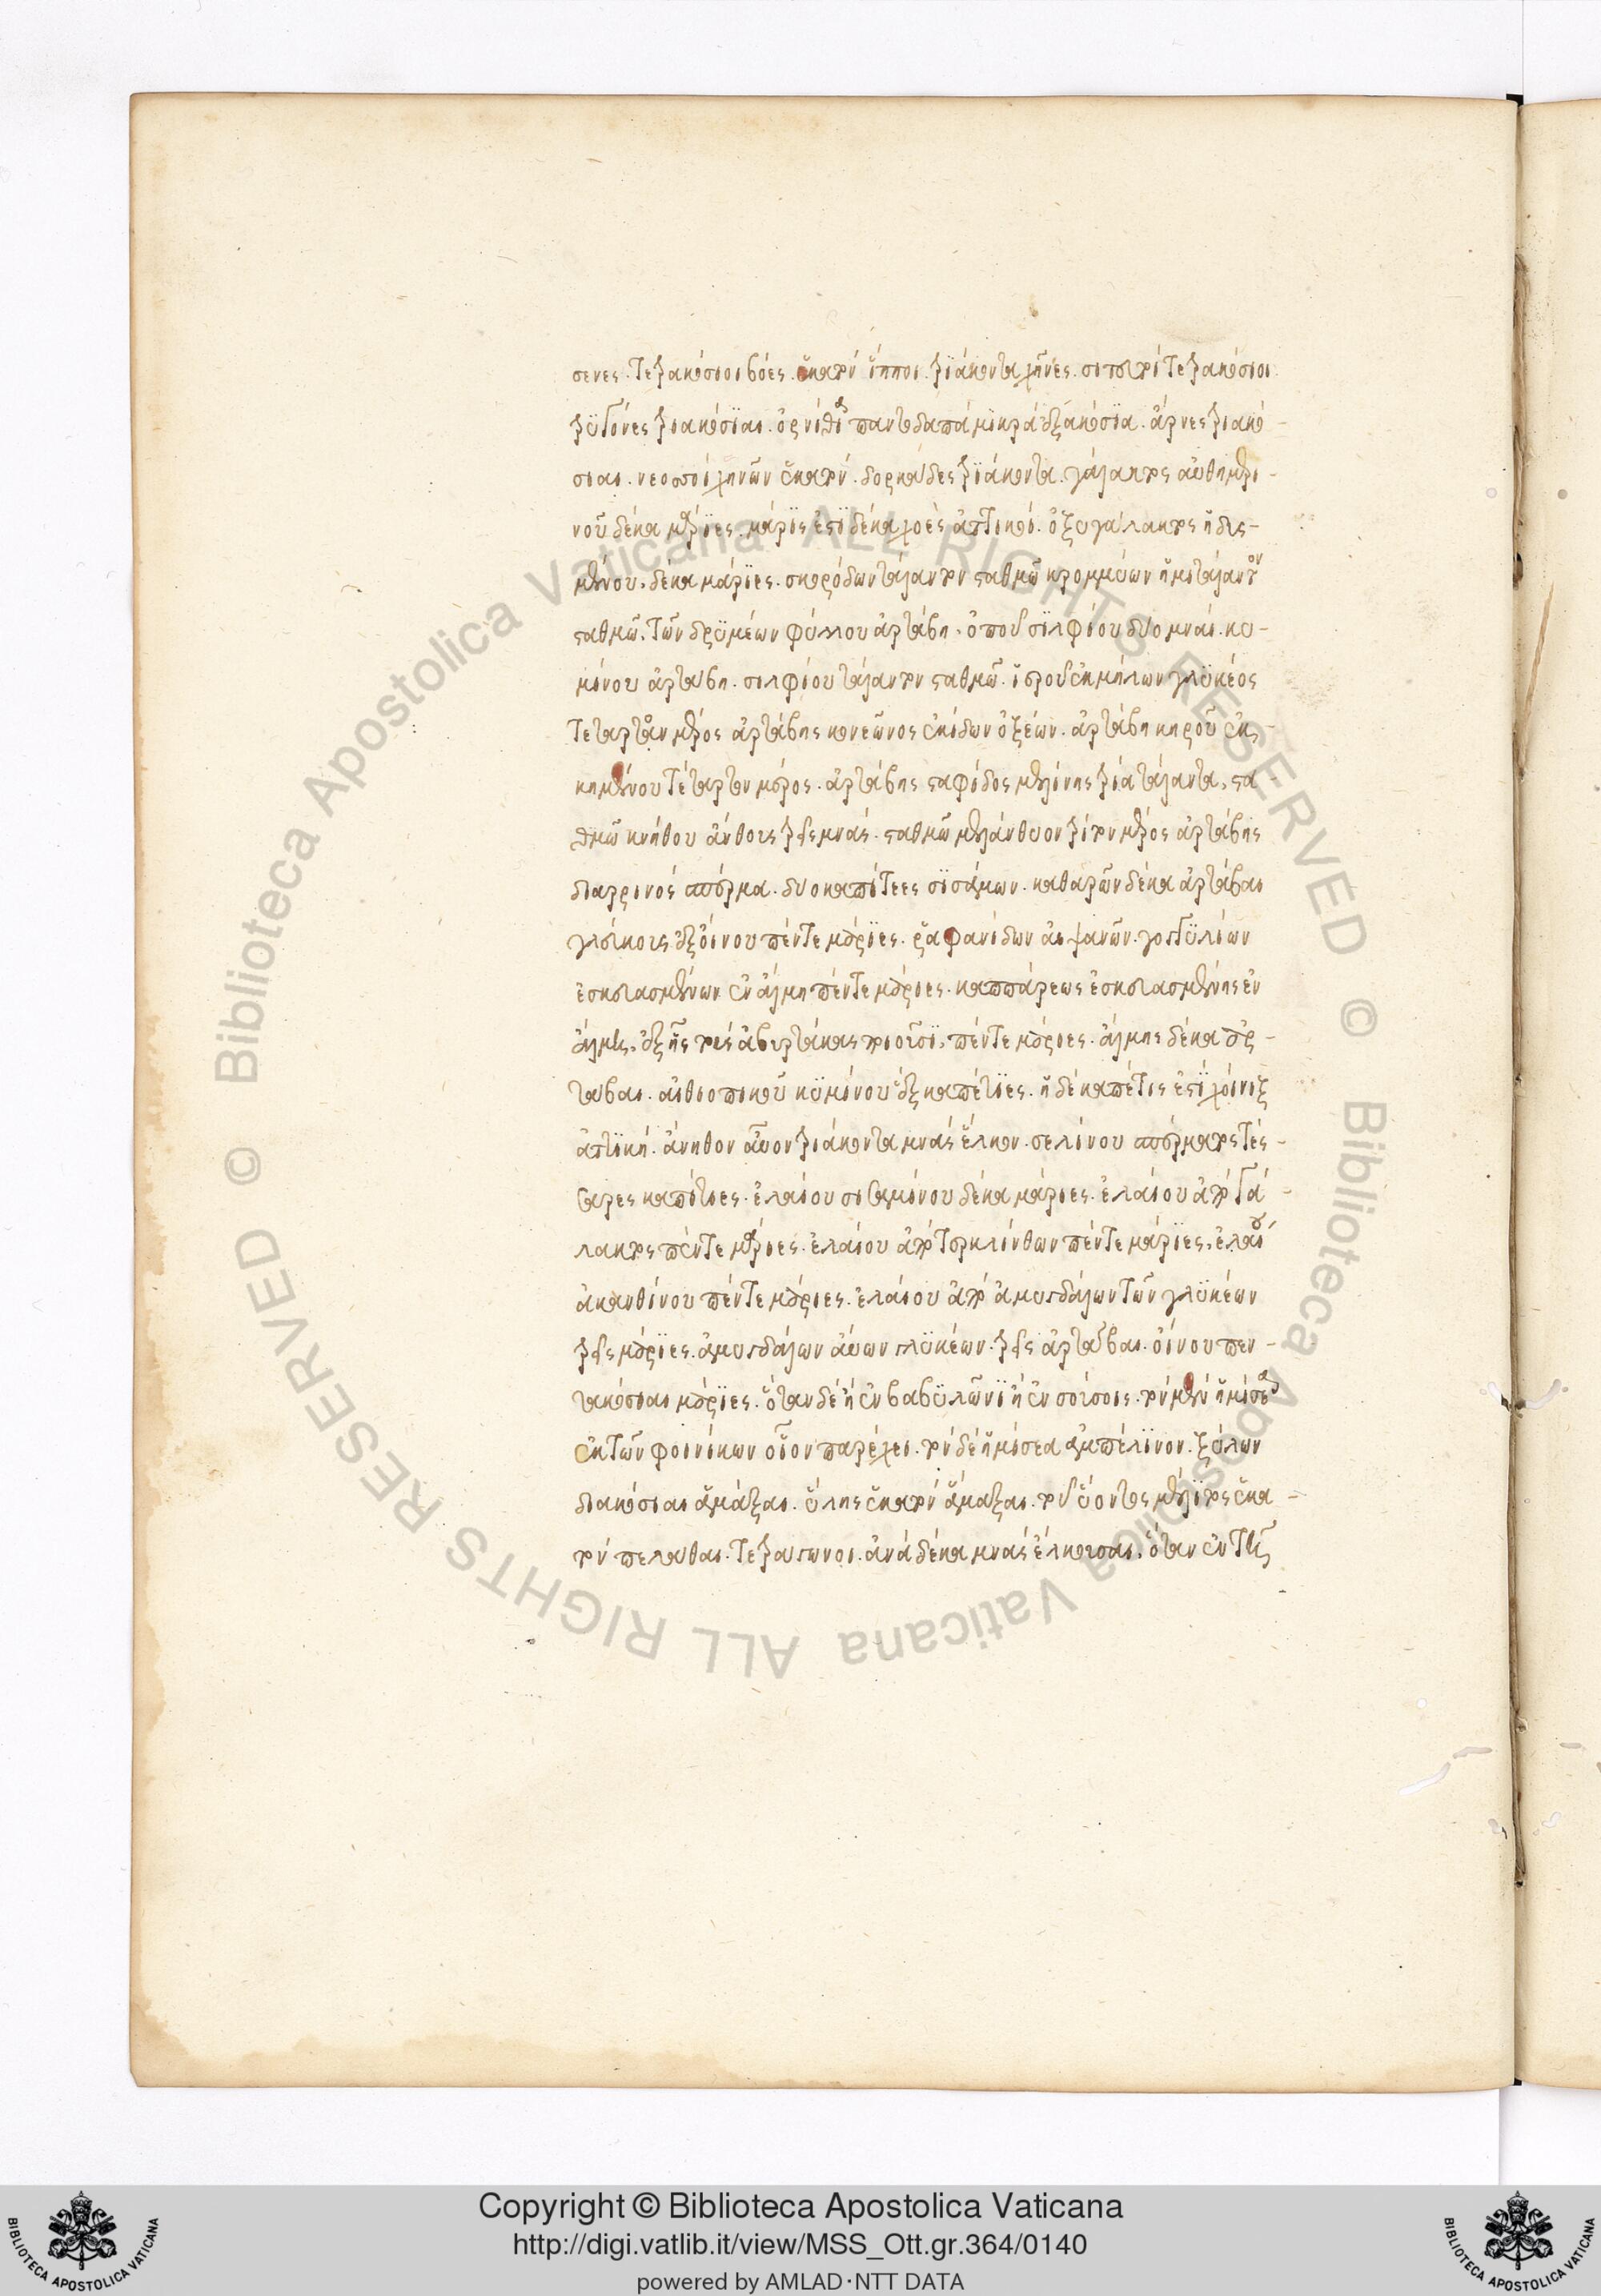 σενες. τετρακόσιοι βόες. ἑκατὸν ἵπποι. τριάκοντα χῆνες. σιτευτοὶ τετρακόσιοι
τρυγόνες τριακόσϊαι. ὀρνίθια παντοδαπὰ μικρὰ ἑξακόσϊα. ἄρνες τριακό-
σιαι. νεοσσοὶ χηνῶν ἑκατόν. δορκάδες τριάκοντα. γάλακτος αὐθημερι-
νοῦ δέκα μάριες. μάρϊς ἐστὶ δέκα χοὲς ἀττικοί. ὀξυγάλακτος ἡδυσ-
μένου. δέκα μάριες. σκορόδων τάλαντον σταθμῶ κρομμύων ἡμιτάλαντον
σταθμῶ. τῶν δρϋμέων φύλλου ἀρτάβη. ὀποῦ σιλφίου δύο μναῖ. κυ-
μίνου ἀρτάβη. σιλφίου τάλαντον σταθμῶ. ἵτρου ἐκ μήλων γλϋκέος
τέταρτον μέρος ἀρτάβης κονεῶνος ἐκίδων ὀξέων. ἀρτάβη κηροῦ ἐκ-
κημένου τέταρτον μέρος. ἀρτάβης σταφίδος μελαίνης τρία τάλαντα. στα
θμῶ κνήθου ἄνθους τρεῖς μνᾶς. σταθμῶ μελάνθυον τρίτον μέρος ἀρτάβης
διαρρινὸς σπέρμα. δυο καπέτιες σϊσάμων. καθαρῶν δέκα ἀρτάβαι
γλεύκους ἐξ οἴνου πέντε μάρϊες. ῥαφανίδων αἱ ψανῶν. γογγϋλίων
ἐσκευασμένων ἐν ἅλμη πέντε μάριες. καππάρεως ἐσκευασμένης ἐν
ἅλμη. ἐξ ἧς τὰς ἀβυρτάκας ποιοῦσϊ. πέντε μάριες. ἁλμῆς δέκα ἀρ-
τάβαι. αἰθιοπικοῦ κϋμίνου ἓξ καπέτϊες. ἡ δὲ καπέτις ἐστὶ χοίνιξ
ἀττϊκή. ἄνηθον αὖον τριάκοντα μνᾶς ἕλκον. σελίνου σπέρματος τέσ-
σαρες καπέτιες. ἐλαίου σισαμίνου δέκα μάριες. ἐλαίου ἀπὸ γά-
λακτος πέντε μάριες. ἐλαίου ἀπὸ τερμίνθων πέντε μάρϊες. ἐλαίου
ἀκανθίνου πέντε μάριες. ἐλαίου ἀπὸ ἀμυγδάλων τῶν γλϋκέων
τρεῖς μάρϊες. ἀμυγδάλων αὔων γλϋκέων. τρεῖς ἀρτάβαι. οἴνου πεν-
τακόσιαι μάρϊες. ὅταν δὲ ἦ ἐν βαβϋλῶνϊ ἢ ἐν σούσοις. τὸν μὲν ἥμισεα
ἐκ τῶν φοινίκων οἶον παρέχει. τὸν δὲ ἥμισεα ἀμπέλϊνον. ξύλων
διακόσιαι ἅμαξαι. ὕλης ἑκατὸν ἅμαξαι. τοῦ ὕοντος μέλϊτος ἑκα-
τὸν πελάθαι. τετράγωνοι. ἀνὰ δέκα μνᾶς ἕλκουσαι. ὅταν ἐν τῆ